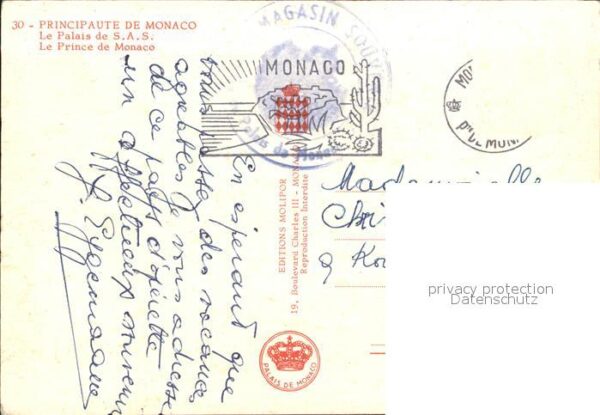 30 - PRINCIPAUTE DE MONACO
Le Palais de S.A.S.
Le Prince de Monaco
MAGASIN SOU
MONACO
Palais de Monaco
MO
P^TÉ DE MON
En espérant que
vous passez des vacances
agréables je vous adresse
de ce pays d'opérette
un affectueux souvenir
EDITIONS MOLIPOR
19, Boulevard Charles III - MONA
Reproduction Interdite
Mademoiselle
Chri
à
PALAIS DE MONACO
privacy protection
Datenschutz